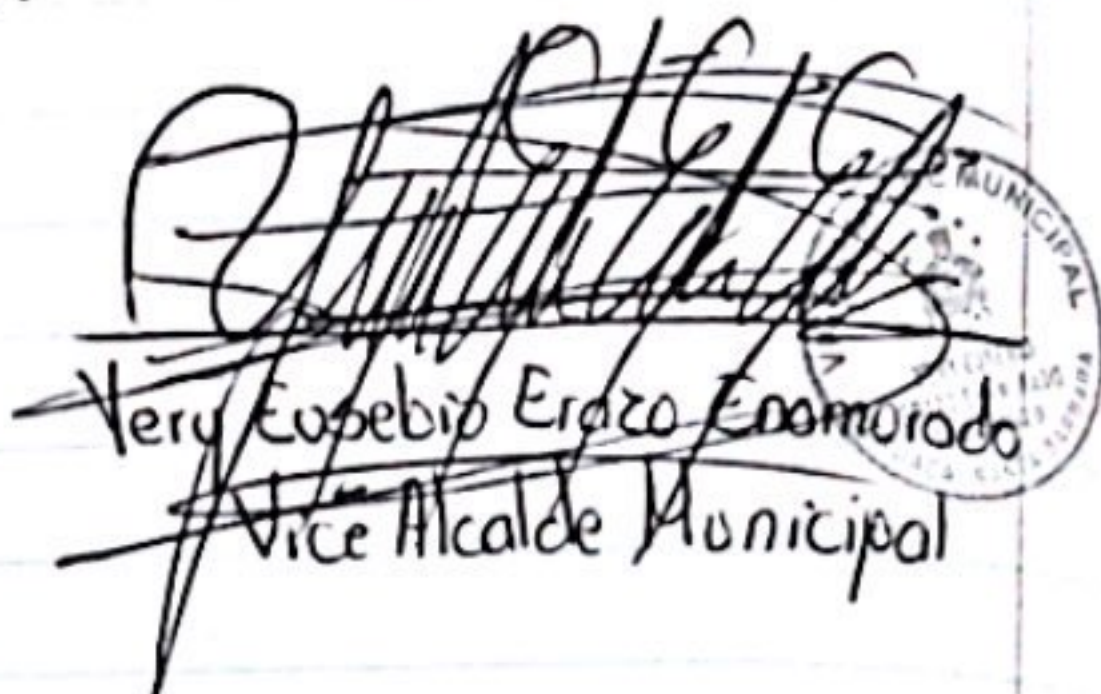 MUNICIPAL
Very Eusebio Erazo Enamorado
Vice Alcalde Municipal